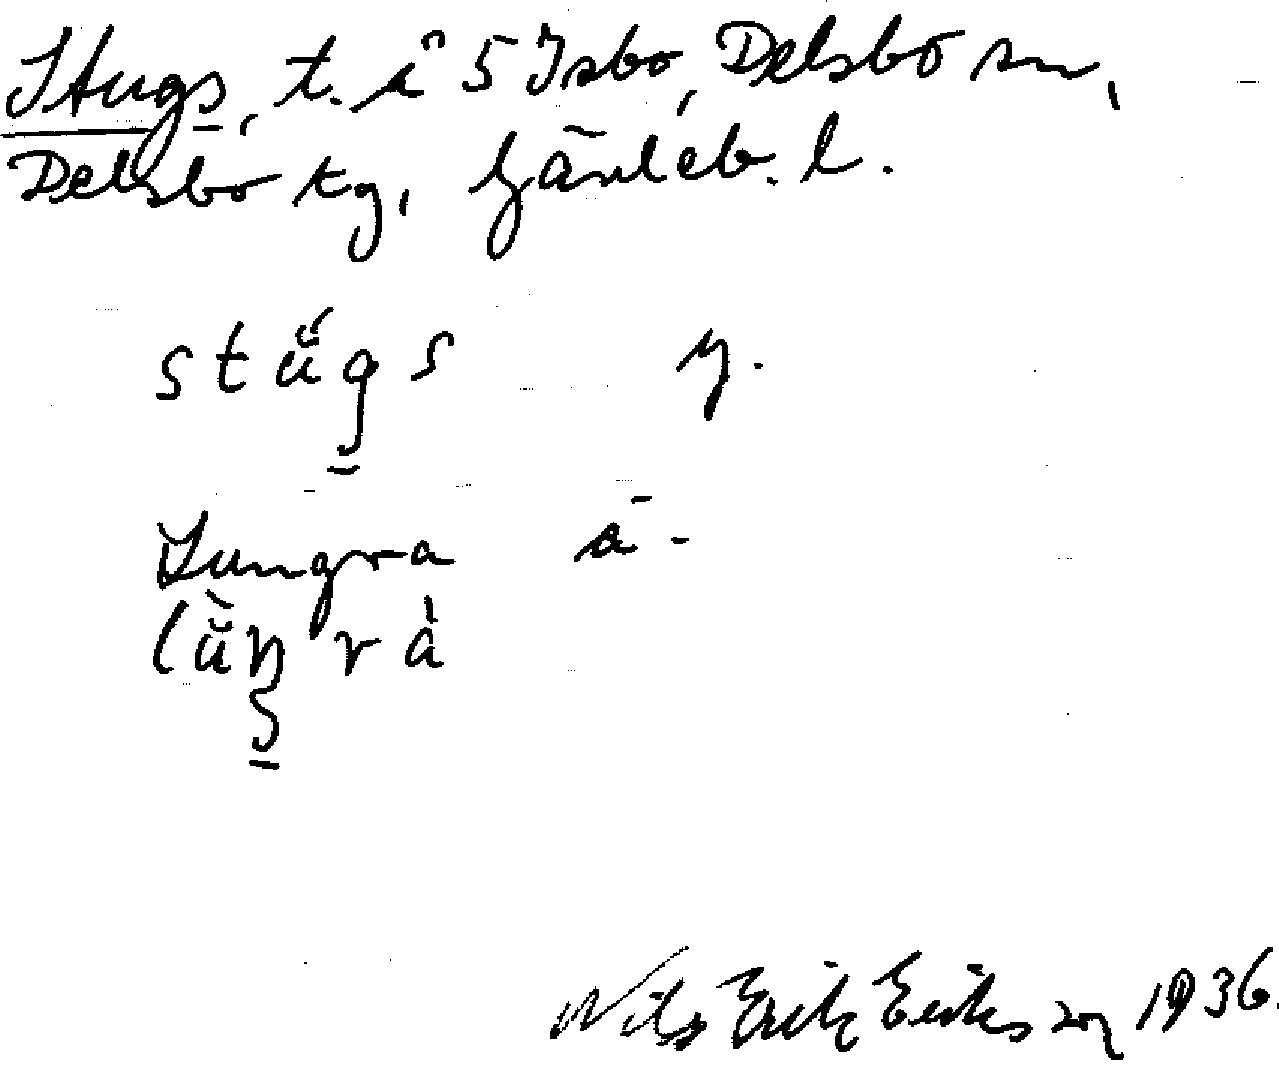 Stugs, t. å 5 Isbo, Delsbo sn,
Delsbo tg, Gävleb. l.
stugs y.
Lungra ä -
Nils Erik Eriksson 1936.